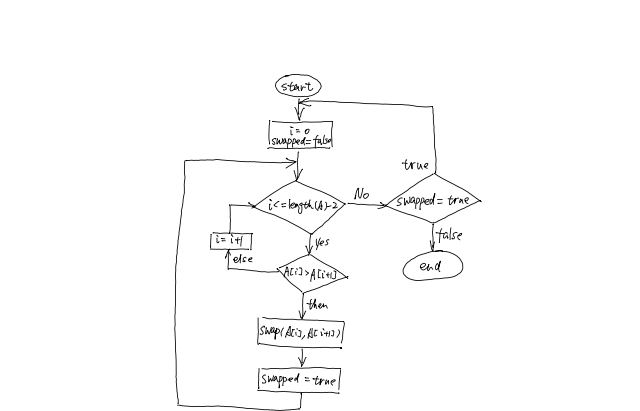 start
i = 0
swapped = false
i <= length(A)-2
No
swapped = true
true
false
end
Yes
i = i+1
else
A[i] > A[i+1]
then
swap(A[i], A[i+1])
swapped = true